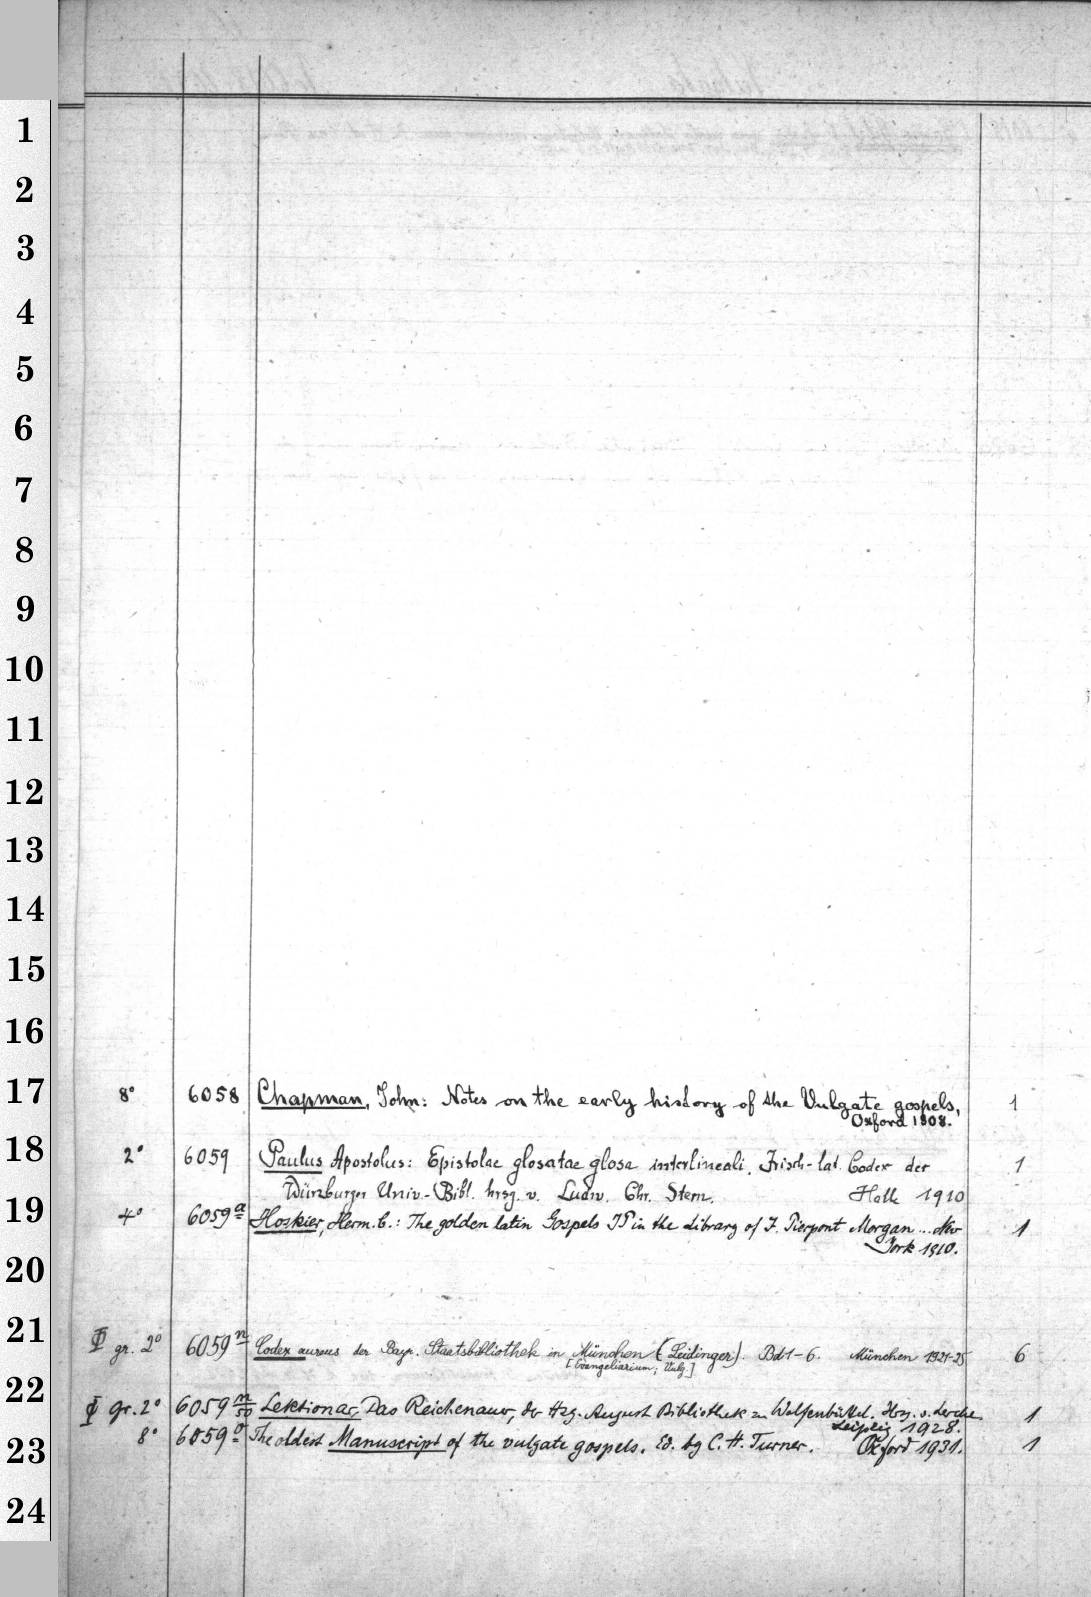 1
2
3
4
5
6
7
8
9
10
11
12
13
14
15
16
17
8° 6058 Chapman, John: Notes on the early history of the Vulgate gospels, 1
Oxford 1908.
18
2° 6059 Paulus Apostolus: Epistolae glosatae glosa interlineali. Irisch-lat. Codex der 1
Würzburger Univ.-Bibl. hrsg. v. Ludw. Chr. Stern. Halle 1910
19
4° 6059a Hoskier, Herm. C.: The golden latin Gospels JP in the Library of J. Pierpont Morgan ... New 1
York 1910.
20
21
Φ gr. 2° 6059n Codex aureus der Bayr. Staatsbibliothek in München (Leidinger). Bd 1-6. München 1921-25 6
[Evangeliarium; Vulg.]
22
Φ gr. 2° 6059n/50 Lektionar, Das Reichenauer, der Hzg. August Bibliothek zu Wolfenbüttel. Hrg. v. Lerche 1
Leipzig 1928.
23
8° 6059o The oldest Manuscript of the vulgate gospels. Ed. by C. H. Turner. Oxford 1931. 1
24